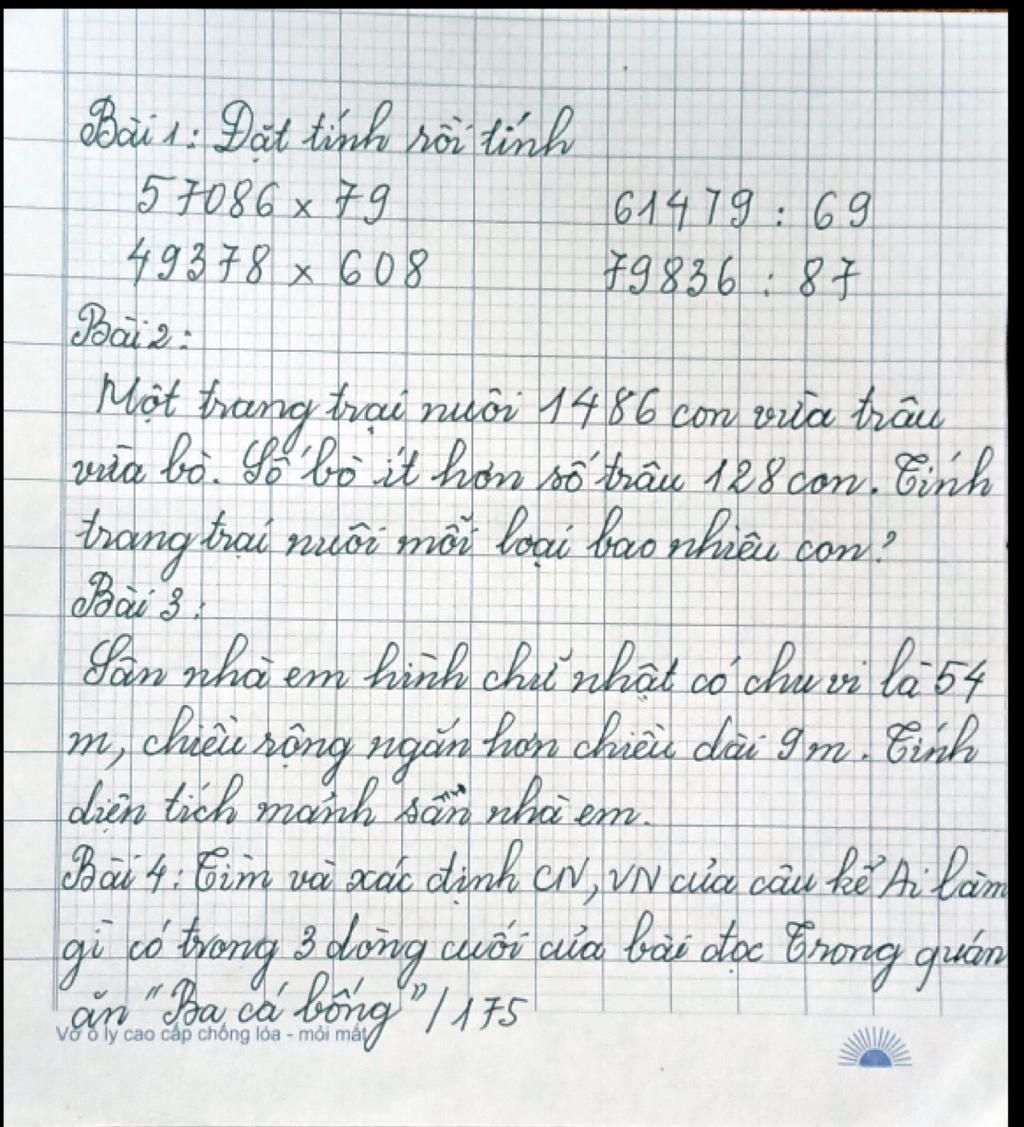 Bài 1: Đặt tính rồi tính
57086 x 79 61479 : 69
49378 x 608 79836 : 87
Bài 2:
Một trang trại nuôi 1486 con vừa trâu
vừa bò. Số bò ít hơn số trâu 128 con. Tính
trang trại nuôi mỗi loại bao nhiêu con?
Bài 3:
Sân nhà em hình chữ nhật có chu vi là 54
m, chiều rộng ngắn hơn chiều dài 9m. Tính
diện tích mảnh sân nhà em.
Bài 4: Tìm và xác định CN, VN của câu kể Ai làm
gì có trong 3 dòng cuối của bài đọc Trong quán
ăn "Ba cá bống" / 175
Vở ô ly cao cấp chống lóa - mỏi mắt